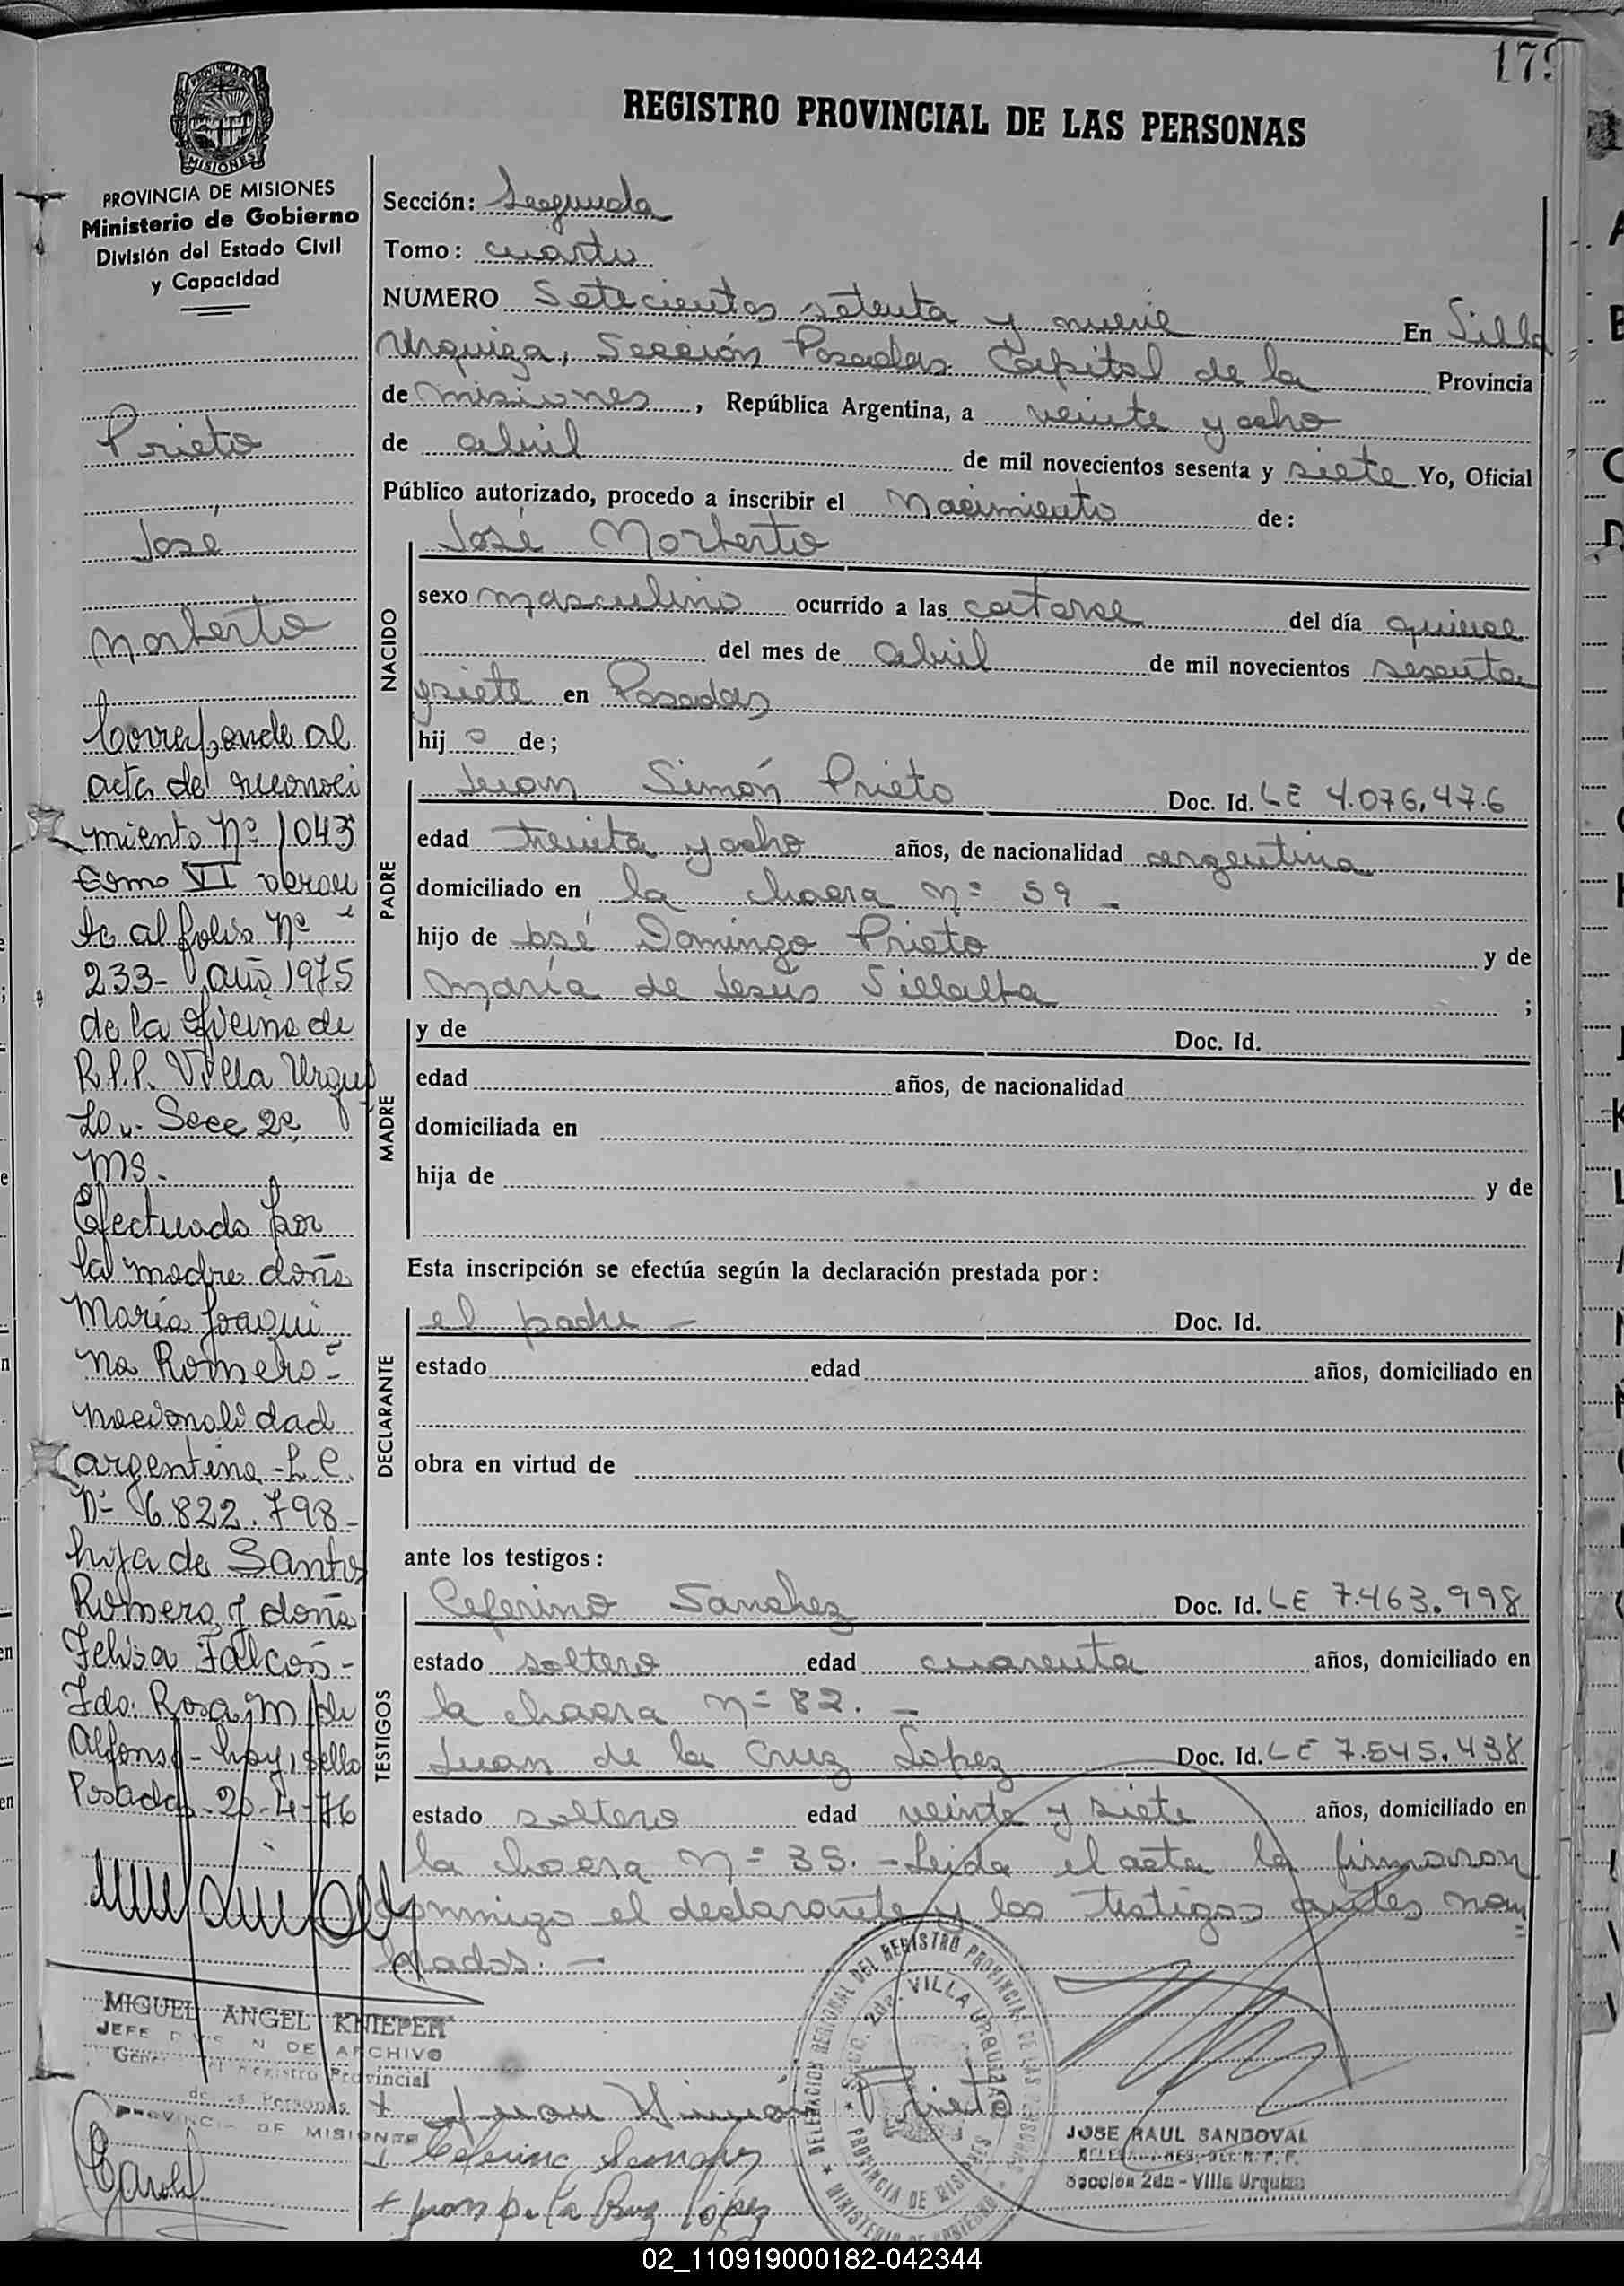 179
REGISTRO PROVINCIAL DE LAS PERSONAS
PROVINCIA DE MISIONES
PROVINCIA DE MISIONES
Ministerio de Gobierno
División del Estado Civil
y Capacidad
Prieto
José
Norberto
Corresponde al
acta de reconoci
miento Nº 1043
tomo VI obran
te al folio Nº
233- año 1975
de la oficina de
R.P.P. Villa Urqui
za.- Secc 2ª
Ms.
Efectuado por
la madre doña
María Joaqui
na Romero-
nacionalidad
argentina - L.C.
Nº 6.822.798-
hija de Santos
Romero y doña
Felisa Falcon-
Fdo: Rosa M de
Alfonso - hay sello
Posadas - 20-4-76
MIGUEL ANGEL KNIEPER
JEFE DIVISION DE ARCHIVO
General del Registro Provincial
de las Personas
PROVINCIA DE MISIONES
Sección: Segunda
Tomo: cuarto
NUMERO Setecientos setenta y nueve En Villa
Urquiza, Sección Posadas Capital de la Provincia
de misiones, República Argentina, a veinte y ocho
de abril de mil novecientos sesenta y siete Yo, Oficial
Público autorizado, procedo a inscribir el Nacimiento de:
NACIDO
José Norberto
sexo masculino ocurrido a las catorce del día quince
del mes de abril de mil novecientos sesenta
y siete en Posadas
hij o de;
PADRE
Juan Simón Prieto Doc. Id. LE 4.076.476
edad treinta y ocho años, de nacionalidad argentina
domiciliado en la chacra nº 59 -
hijo de José Domingo Prieto y de
María de Jesús Villalba ;
MADRE
y de Doc. Id.
edad años, de nacionalidad
domiciliada en
hija de y de
Esta inscripción se efectúa según la declaración prestada por:
DECLARANTE
el padre - Doc. Id.
estado edad años, domiciliado en
obra en virtud de
ante los testigos:
TESTIGOS
Ceferino Sanchez Doc. Id. LE 7.463.998
estado soltero edad cuarenta años, domiciliado en
la chacra nº 82. -
Juan de la Cruz López Doc. Id. LE 7.545.438
estado soltero edad veinte y siete años, domiciliado en
la chacra nº 35. - Leida el acta la firmaron
conmigo el declarante y los testigos antes nom
brados. -
DELEGACION REGIONAL DEL REGISTRO PROVINCIAL DE LAS PERSONAS
Secc. 2da. VILLA URQUIZA
PROVINCIA DE MISIONES
MINISTERIO DE GOBIERNO
+ Juan Simón Prieto
+ Ceferino Sanchez
+ Juan de la Cruz López
JOSE RAUL SANDOVAL
DELEGADO REG. DEL R. P. P.
Sección 2da - Villa Urquiza
02_110919000182-042344